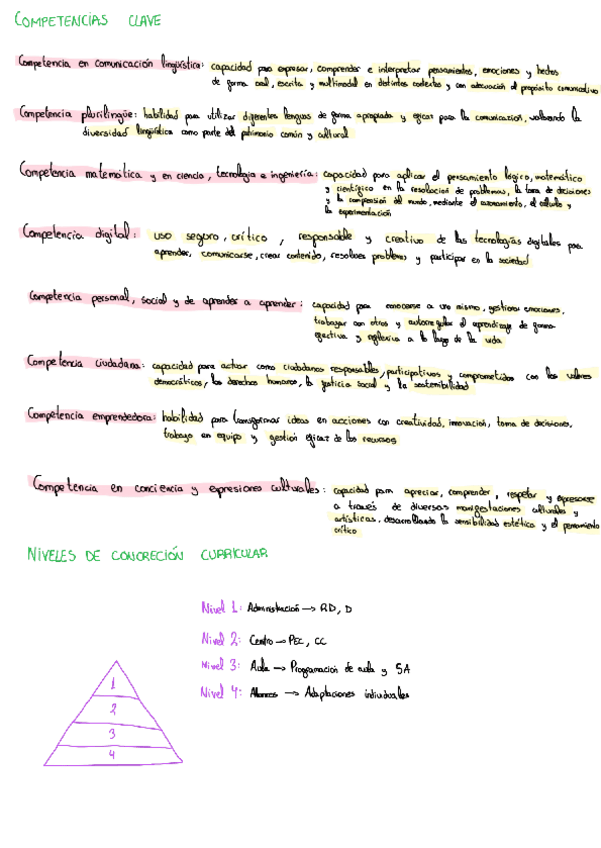 COMPETENCIAS CLAVE
Competencia en comunicación lingüística: capacidad para expresar, comprender e interpretar pensamientos, emociones y hechos
de forma oral, escrita y multimodal en distintos contextos y con adecuación al propósito comunicativo
Competencia plurilingüe: habilidad para utilizar diferentes lenguas de forma apropiada y eficaz para la comunicación, valorando la
diversidad lingüística como parte del patrimonio común y cultural
Competencia matemática y en ciencia, tecnología e ingeniería: capacidad para aplicar el pensamiento lógico, matemático
y científico en la resolución de problemas, la toma de decisiones
y la comprensión del mundo, mediante el razonamiento, el cálculo y
la experimentación
Competencia digital: uso seguro, crítico, responsable y creativo de las tecnologías digitales para
aprender, comunicarse, crear contenido, resolver problemas y participar en la sociedad
Competencia personal, social y de aprender a aprender: capacidad para conocerse a uno mismo, gestionar emociones,
trabajar con otros y autorregular el aprendizaje de forma
efectiva y reflexiva a lo largo de la vida
Competencia ciudadana: capacidad para actuar como ciudadanos responsables, participativos y comprometidos con los valores
democráticos, los derechos humanos, la justicia social y la sostenibilidad
Competencia emprendedora: habilidad para transformar ideas en acciones con creatividad, innovación, toma de decisiones,
trabajo en equipo y gestión eficaz de los recursos
Competencia en conciencia y expresiones culturales: capacidad para apreciar, comprender, respetar y expresarse
a través de diversas manifestaciones culturales y
artísticas, desarrollando la sensibilidad estética y el pensamiento
crítico
NIVELES DE CONCRECIÓN CURRICULAR
Nivel 1: Administración → RD, D
Nivel 2: Centro → PEC, CC
Nivel 3: Aula → Programación de aula y SA
Nivel 4: Alumnos → Adaptaciones individuales
1
2
3
4